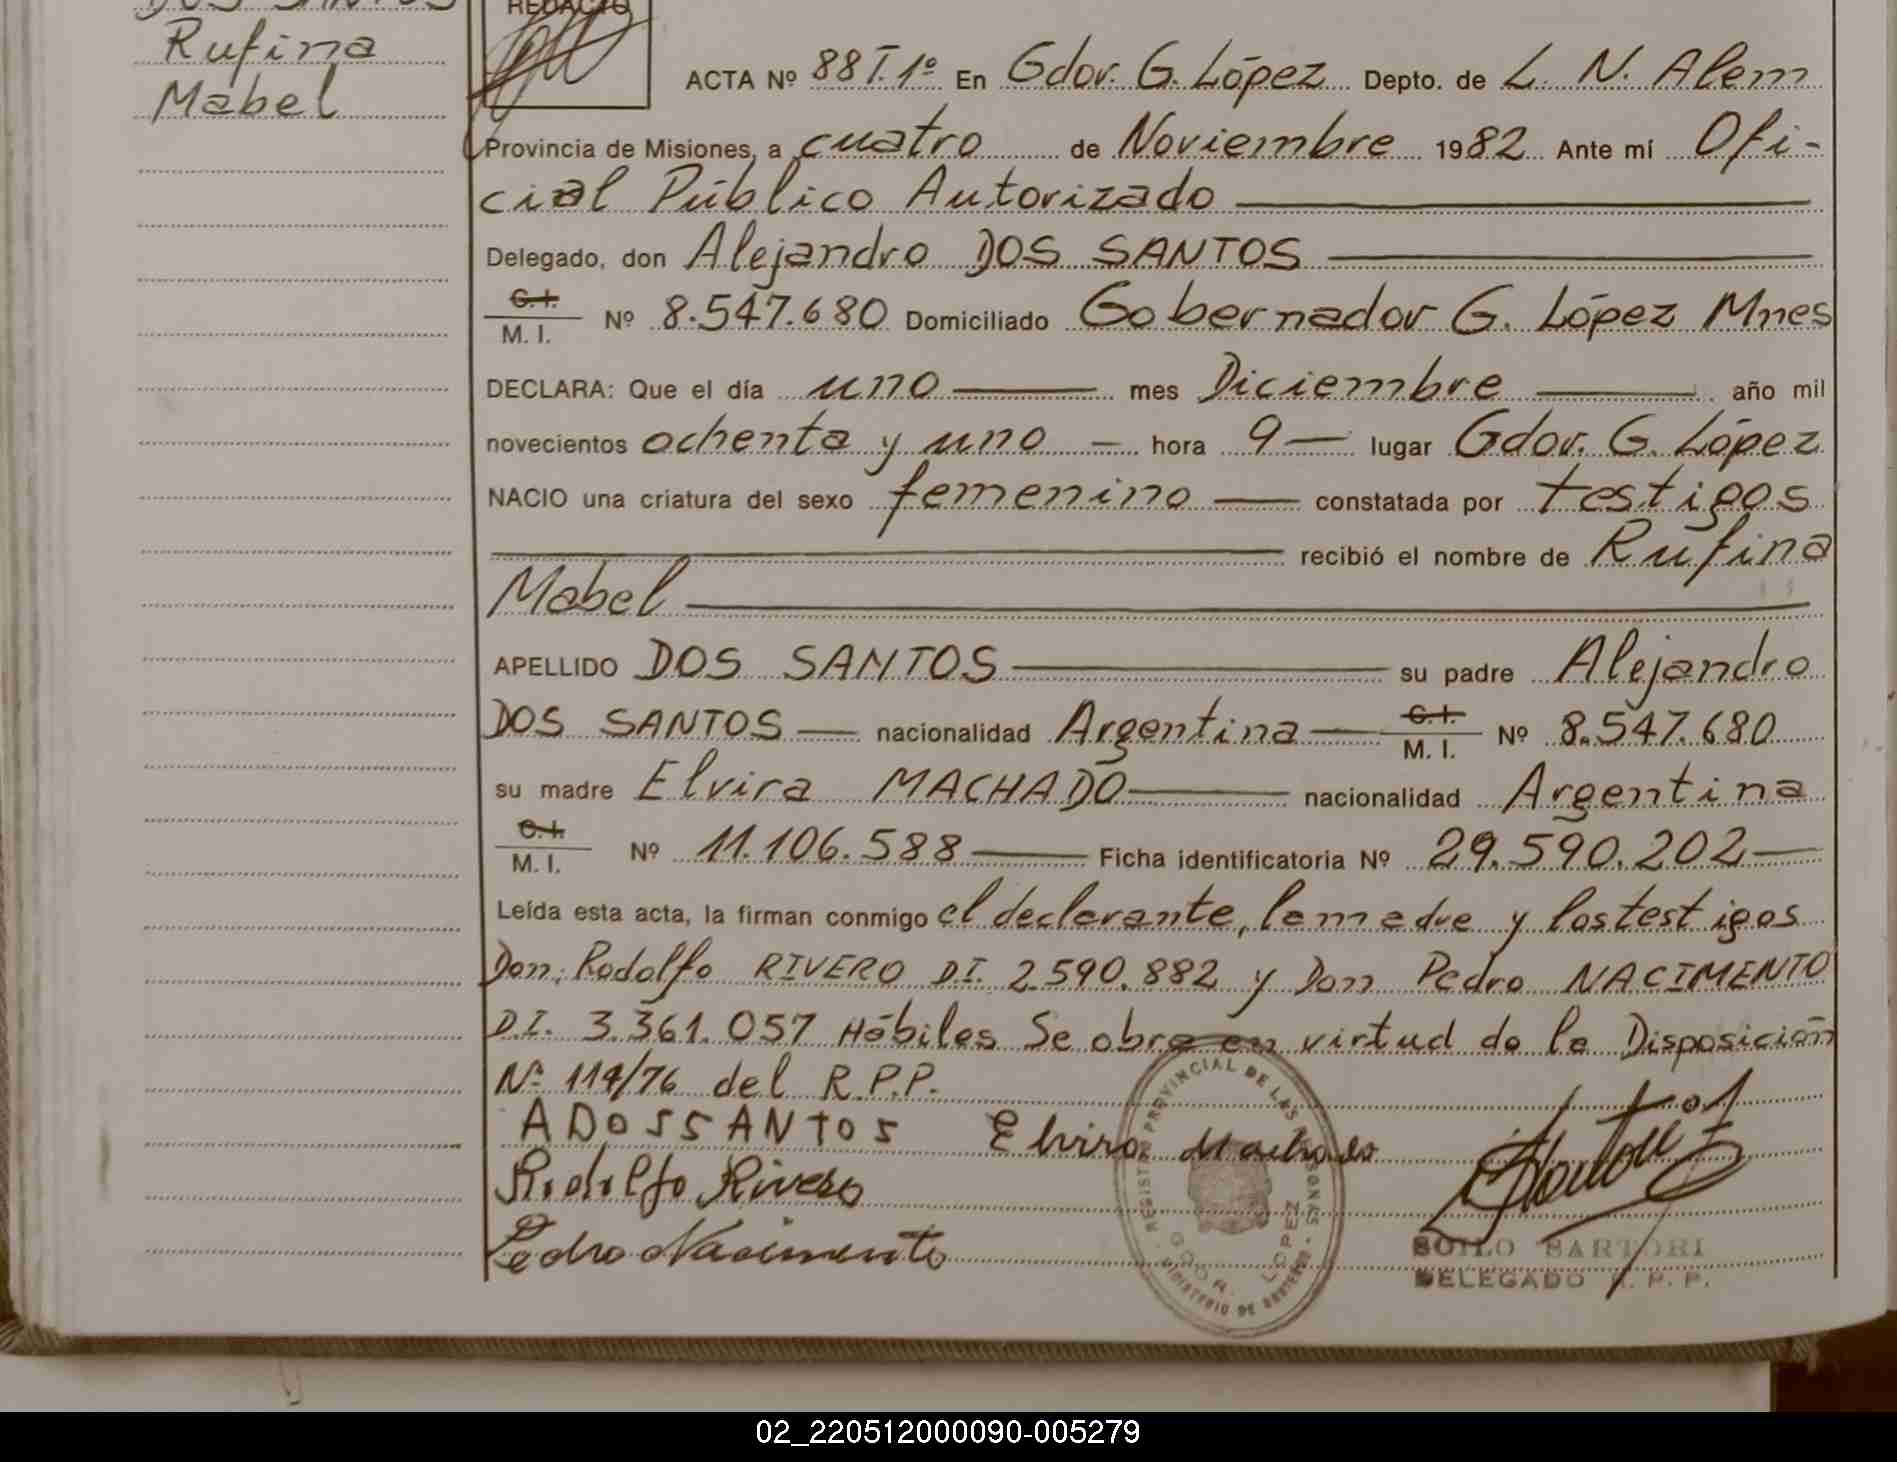 DOS SANTOS
Rufina
Mabel
REDACTO
ACTA Nº 88 T. 1º En Gdor. G. López Depto. de L. N. Alem
Provincia de Misiones, a cuatro de Noviembre 1982 Ante mí Ofi-
cial Público Autorizado
Delegado, don Alejandro DOS SANTOS
C. I.
M. I. Nº 8.547.680 Domiciliado Gobernador G. López Mnes
DECLARA: Que el día uno mes Diciembre año mil
novecientos ochenta y uno hora 9 lugar Gdor. G. López
NACIO una criatura del sexo femenino constatada por testigos
recibió el nombre de Rufina
Mabel
APELLIDO DOS SANTOS su padre Alejandro
DOS SANTOS nacionalidad Argentina C. I. M. I. Nº 8.547.680
su madre Elvira MACHADO nacionalidad Argentina
C. I.
M. I. Nº 11.106.588 Ficha identificatoria Nº 29.590.202
Leída esta acta, la firman conmigo el declarante, la madre y los testigos
Don: Rodolfo RIVERO D.I. 2.590.882 y Don Pedro NACIMENTO
D.I. 3.361.057 Hábiles Se obra en virtud de la Disposición
Nº 114/76 del R.P.P.
ADOSSANTOS Elvira Machado
Rodolfo Rivero
Pedro Nacimento
REGISTRO PROVINCIAL DE LAS PERSONAS
GDOR. LOPEZ
MINISTERIO DE GOBIERNO
SOILO SARTORI
DELEGADO R. P. P.
02_220512000090-005279